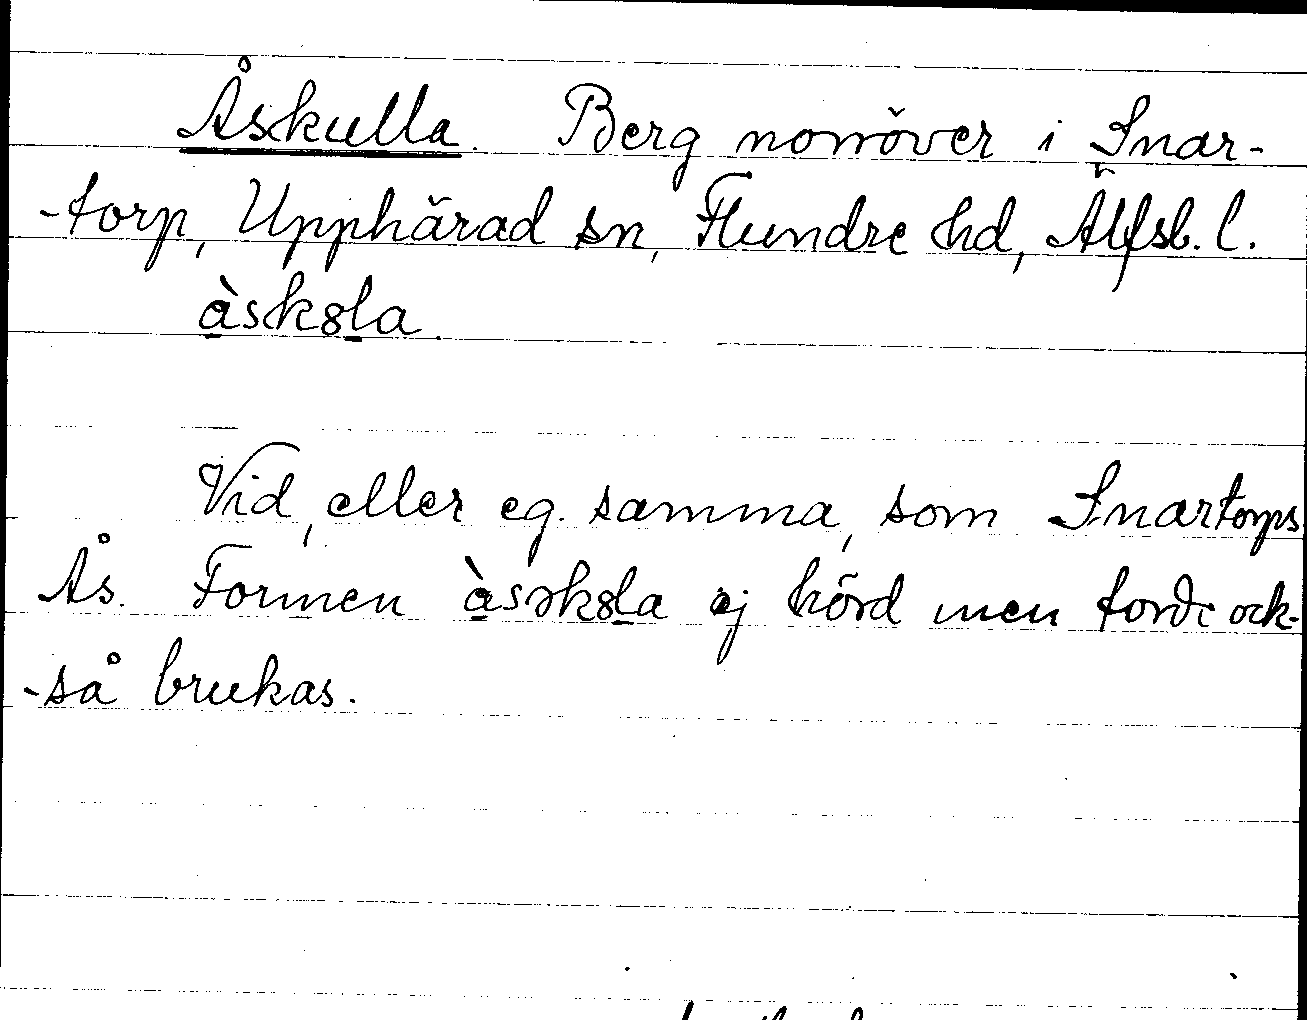 Åskulla. Berg norröver i Snar-
-torp, Upphärad sn, Flundre hd, Älfsb. l.
àsk8la.
Vid, eller eg. samma, som Snartorps
Ås. Formen àsək8la ej hörd men torde ock-
-så brukas.